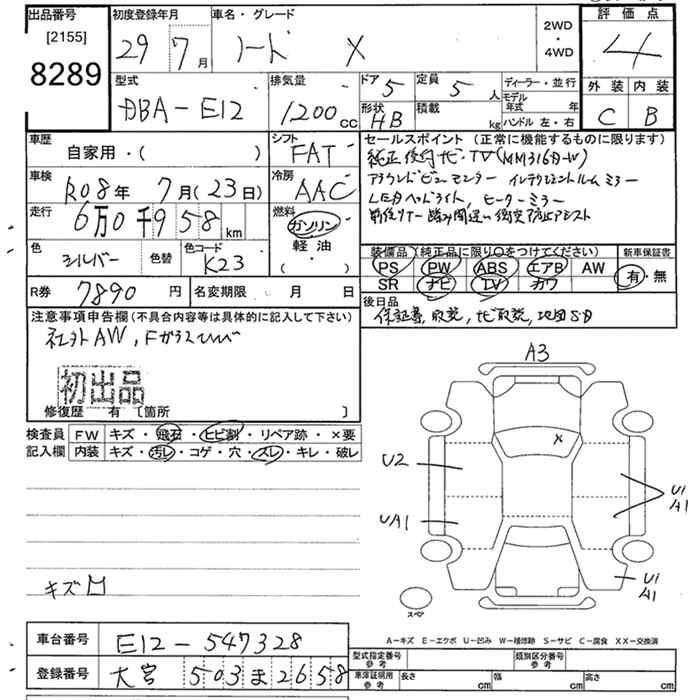 出品番号 初度登録年月 車名・グレード 2WD・4WD 評価点
[2155]
8289 29年7月 ノート X 4
型式 排気量 ドア 5 定員 5人 ディーラー・並行 外装 内装
DBA-E12 1200cc 形状 HB 積載 kg モデル年式 年 ハンドル 左・右 C B
車歴 自家用・( ) シフト FAT セールスポイント(正常に機能するものに限ります)
純正後付ナビ・TV(MM316D-W)
車検 R08年7月(23日) 冷房 AAC アラウンドビューモニター インテリジェントルームミラー
LEDヘッドライト、ヒーターミラー
走行 6万0千958km 燃料 ガソリン・軽油・( ) 前後リヤー踏み間違い衝突防止アシスト
色 シルバー 色替 色コード K23 装備品(純正品に限り○をつけてください) 新車保証書
PS PW ABS エアB AW 有・無
SR ナビ TV カワ
R券 7890円 名変期限 月 日 後日品
保証書,取説,ナビ取説,地図SD
注意事項申告欄(不具合内容等は具体的に記入して下さい)
社外AW,Fガラスヒビ
初出品
修復歴 有 〔箇所 〕
検査員記入欄 FW キズ・飛石・ヒビ割・リペア跡・×要
内装 キズ・汚レ・コゲ・穴・スレ・キレ・破レ
A3
X
U2
U1
A1
UA1
U1
A1
キズ
スペア
A−キズ E−エクボ U−凹み W−補修跡 S−サビ C−腐食 XX−交換済
車台番号 E12-547328 型式指定番号 参考 類別区分番号 参考
登録番号 大宮 503 ま 2658 車庫証明用 参考 長さ cm 幅 cm 高さ cm